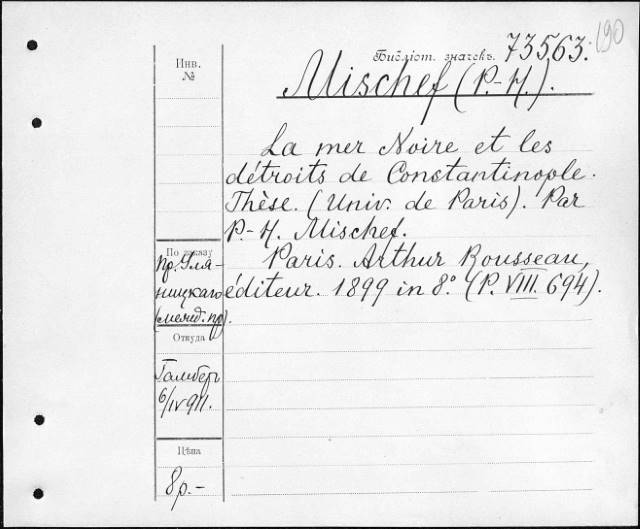 190
Библіот. значекъ. 73563.
Инв.
№
Mischef (P.-H.).
La mer Noire et les
détroits de Constantinople.
Thèse. (Univ. de Paris). Par
P.-H. Mischef.
Paris. Arthur Rousseau,
éditeur. 1899 in 8.° (P. VIII. 694).
По заказу
пр. Уля-
ницкаго
(межд. пр).
Откуда
Гамбер
6/IV 911.
Цѣна
8р.-